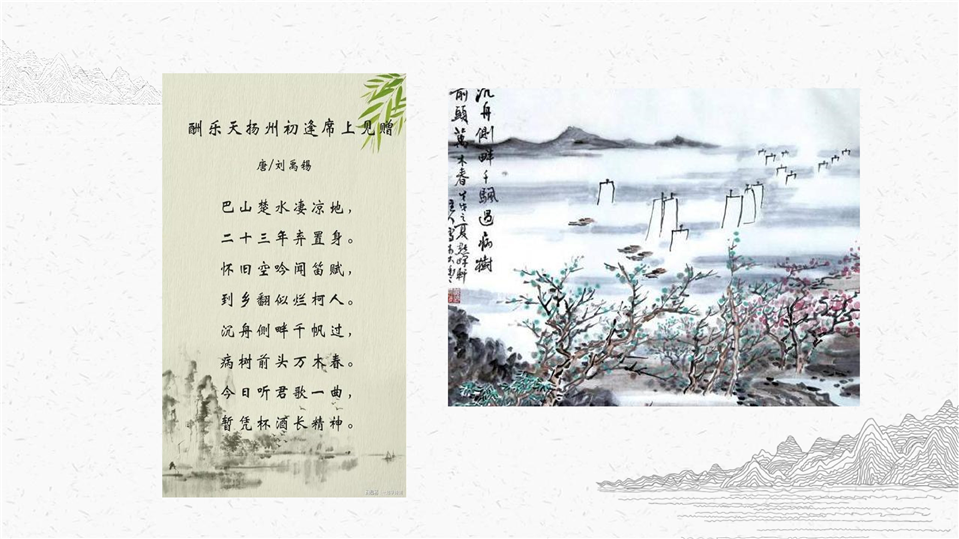 酬乐天扬州初逢席上见赠
唐/刘禹锡
巴山楚水凄凉地，
二十三年弃置身。
怀旧空吟闻笛赋，
到乡翻似烂柯人。
沉舟侧畔千帆过，
病树前头万木春。
今日听君歌一曲，
暂凭杯酒长精神。
沉舟側畔千颿過病樹
前頭萬木春